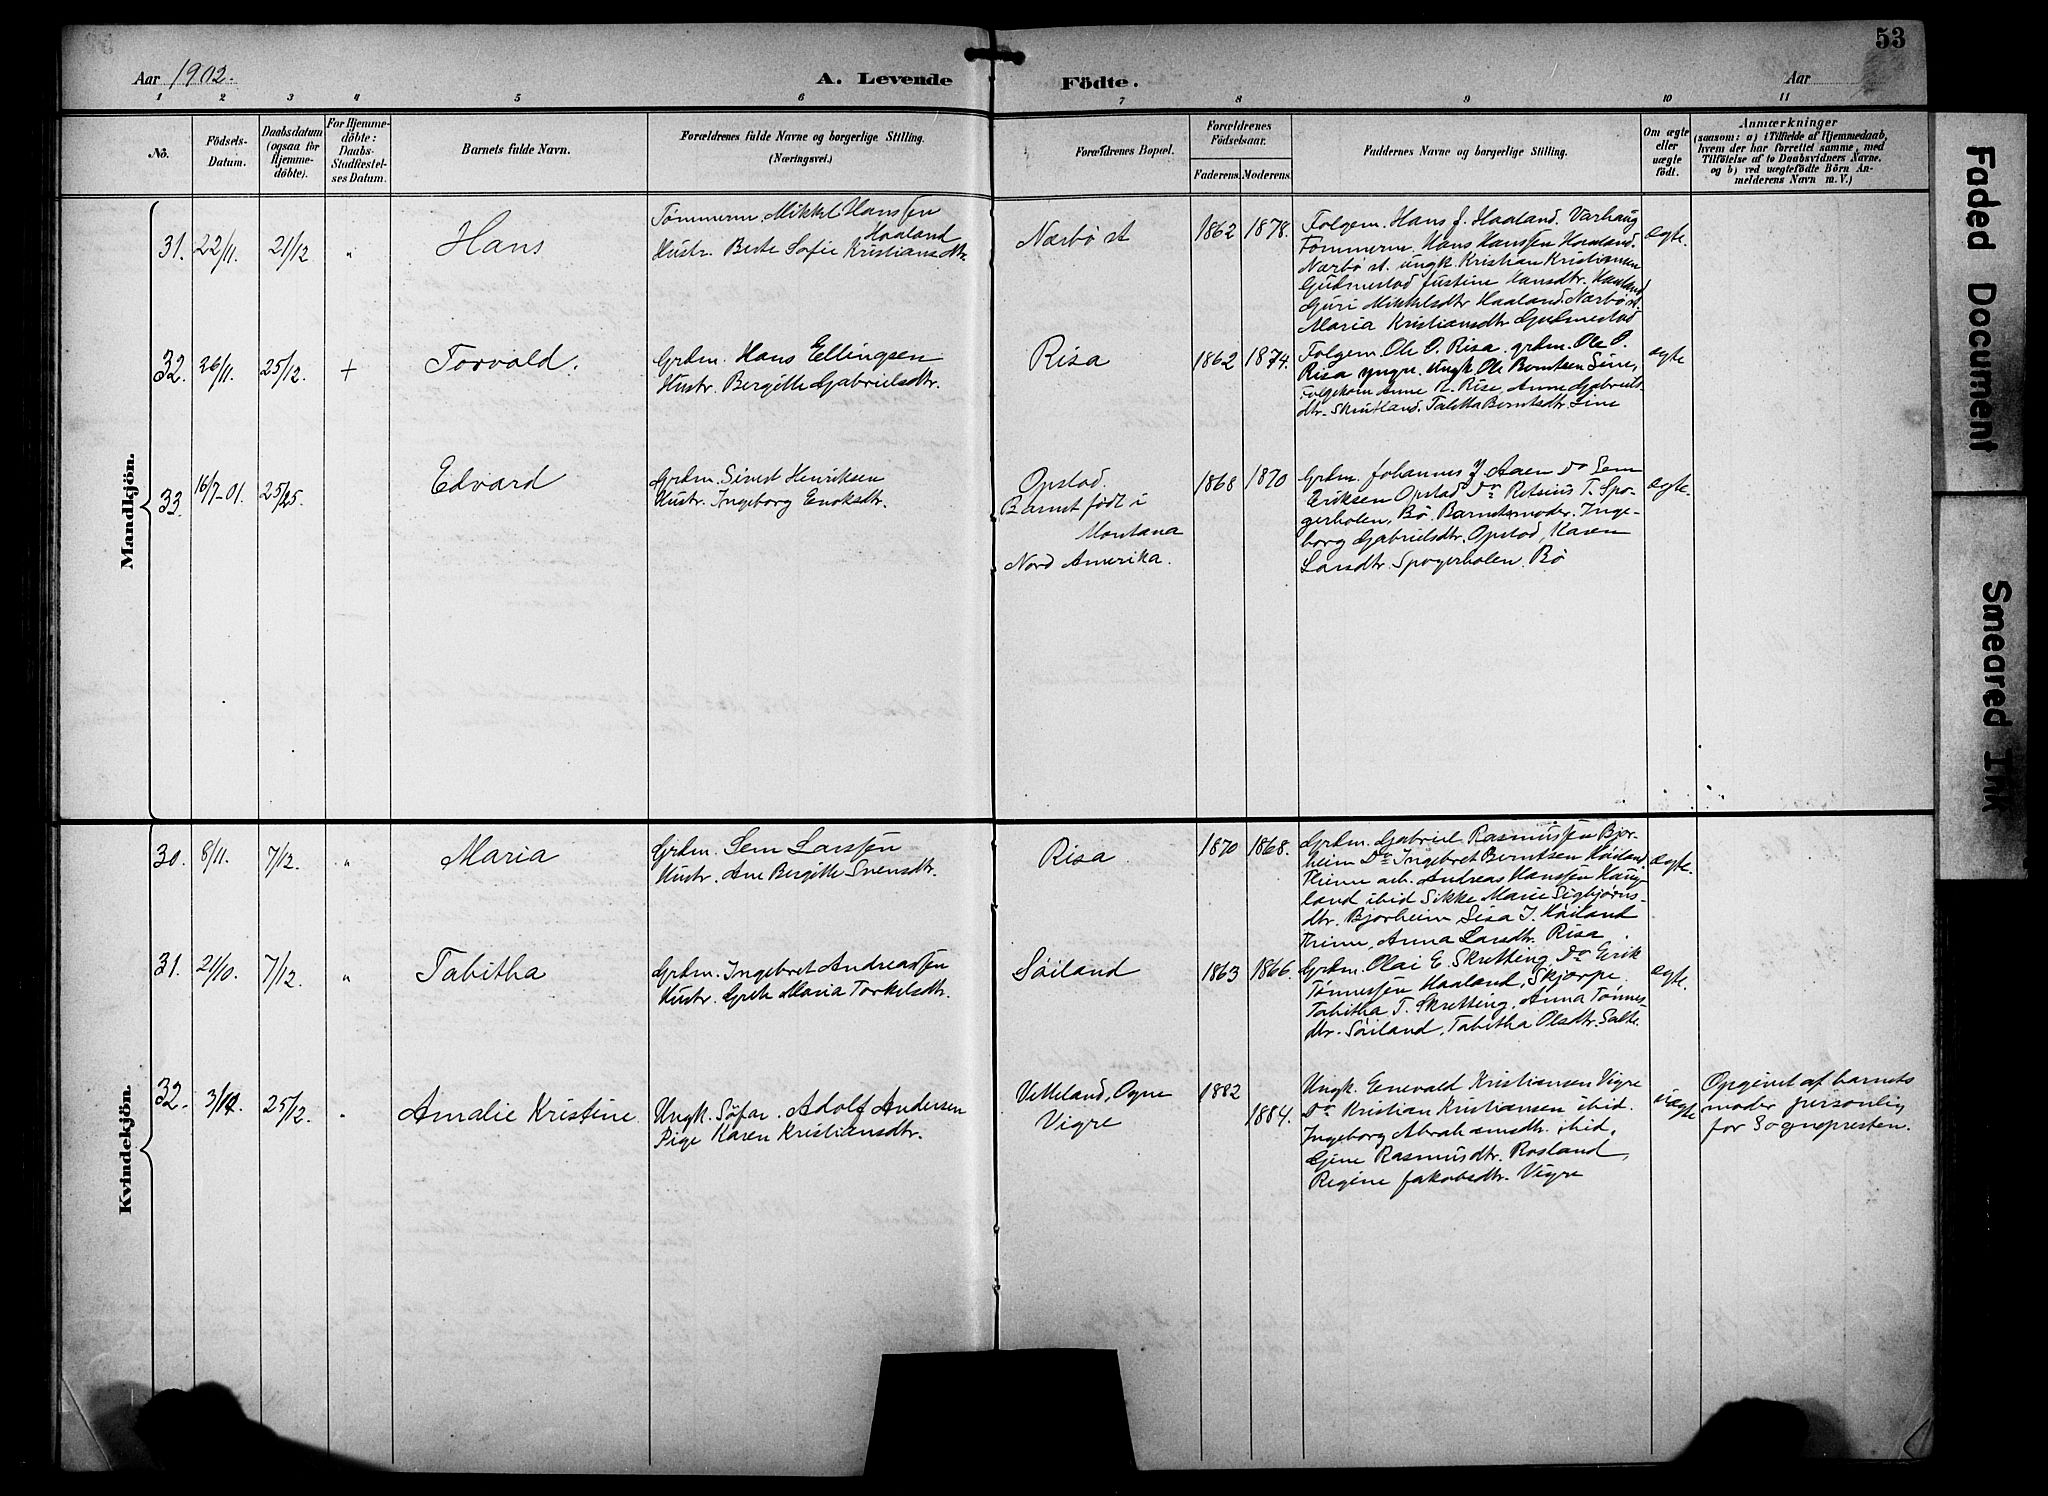 53
Aar 1902.
A. Levende Födte.
Aar
1 2 3 4 5 6 7 8 9 10 11
No.
Födsels-
Datum.
Daabsdatum
(ogsaa for
Hjemme-
döbte).
For Hjemme-
döbte:
Daabs-
Stadfæstel-
ses Datum.
Barnets fulde Navn.
Forældrenes fulde Navne og borgerlige Stilling.
(Næringsvei.)
Forældrenes Bopæl.
Forældrenes
Födselsaar.
Faderens. Moderens.
Faddernes Navne og borgerlige Stilling.
Om ægte
eller
uægte
födt.
Anmærkninger
(saasom: a) i Tilfælde af Hjemmedaab,
hvem der har forrettet samme, med
Tilföielse af to Daabsvidners Navne,
og b) ved uægtefödte Börn An-
melderens Navn m. V.)
Mandkjön.
31. 22/11. 21/12 " Hans
Tømmerm. Mikkel Hanssen
Haaland
Hustr. Berte Sofie Kristiansdtr.
Nærbö st 1862 1878.
Folgem. Hans J. Haaland. Varhaug
Tømmerm. Hans Hanssen Haaland.
Nærbö st. ungk. Kristian Kristiansen
Gudmestad Justine Hansdtr. Haaland
Guri Mikkelsdtr Haaland. Nærbö st.
Maria Kristiansdtr Gudmestad
ægte.
32. 26/11. 25/12. + Torvald.
Grdm. Hans Ellingsen
Hustr. Bergitte Gabrielsdtr.
Risa 1862 1874.
Folgem. Ole O. Risa. grdm. Ole O.
Risa yngre. Ungk Ole Berntsen Sine,
Folgekone Anne R. Risa, Anne Gabriels-
dtr. Skrutland. Talitta Berntsdtr. Line
ægte
33. 16/7-01. 25/25. Edvard
Grdm. Sivert Henriksen
Hustr. Ingeborg Enoksdtr.
Opstad.
Barnet födt i
Montana
Nord Amerika.
1868 1870
Grdm. Johannes J. Aaen Do Sem
Eriksen Opstad Do Retsius T. Spo-
gerholen, Bö. Barnetsmoder. Inge-
borg Gabrielsdtr. Opstad, Karen
Larsdtr. Spogerholen. Bö
ægte.
Kvindekjön.
30. 8/11. 7/12. " Maria
Grdm. Sem Larssen
Hustr. Ane Bergitte Svensdtr.
Risa 1870 1868.
Grdm. Gabriel Rasmussen Bjor-
heim Do Ingebret Berntsen Höiland
Thime arb. Andreas Hanssen Haug-
land ibid Sikke Marie Sigbjörns-
dtr. Bjorheim Lisa J. Höiland
Thime, Anna Larsdtr. Risa.
ægte.
31. 21/10. 7/12. " Tabitha
Grdm. Ingebret Andreassen
Hustr. Grete Maria Torkelsdtr.
Söiland 1863 1866.
Grdm. Olai E. Skretting, Do Erik
Tönnessen Haaland, Skjærpe.
Tabitha T. Skretting, Anna Tönnes-
dtr. Söiland, Tabitha Olsdtr. Salte.
ægte.
32. 3/12. 25/12. " Amalie Kristine
Ungk. Söfar. Adolf Andersen
Pige Karen Kristiansdtr.
Vetteland, Ogne
Vigre
1882 1884.
Ungk. Enevald Kristiansen Vigre
Do Kristian Kristiansen ibid.
Ingeborg Abrahamsdtr. ibid.
Gine Rasmusdtr. Rosland,
Regine Jakobsdtr. Vigre
uægte
Opgivet af barnets
moder personlig
for Sognepresten.
Faded Document
Smeared Ink